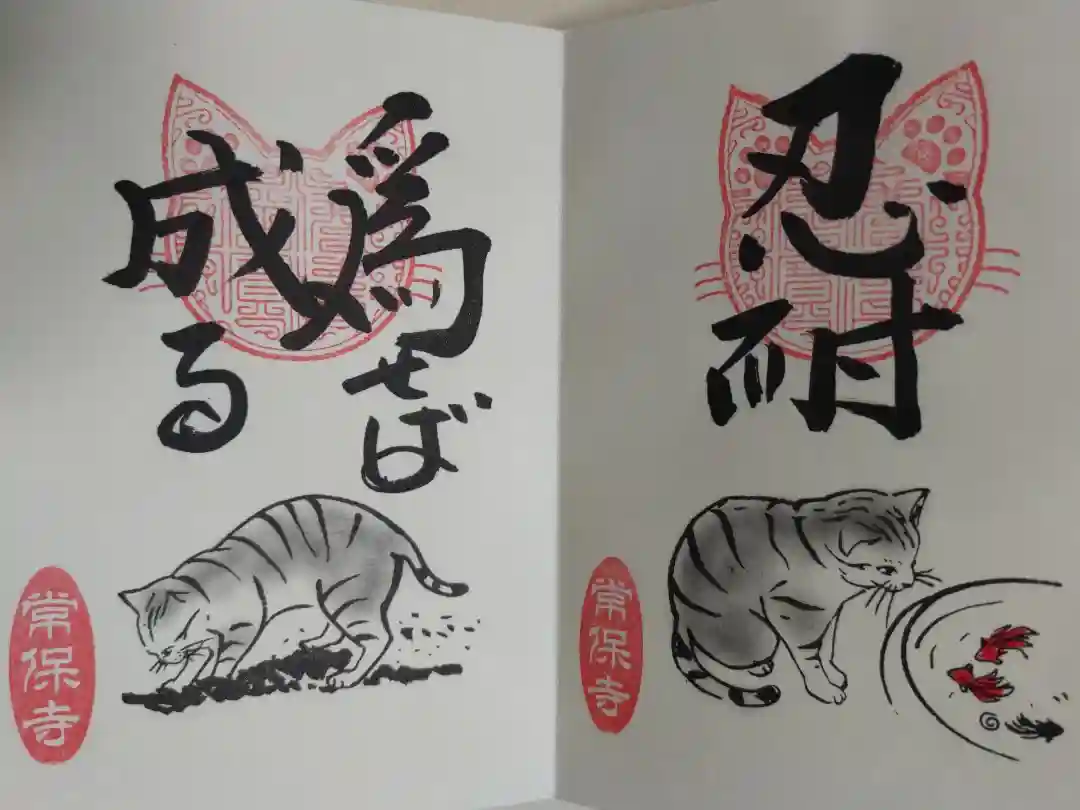 忍耐
常保寺
為せば
成る
常保寺